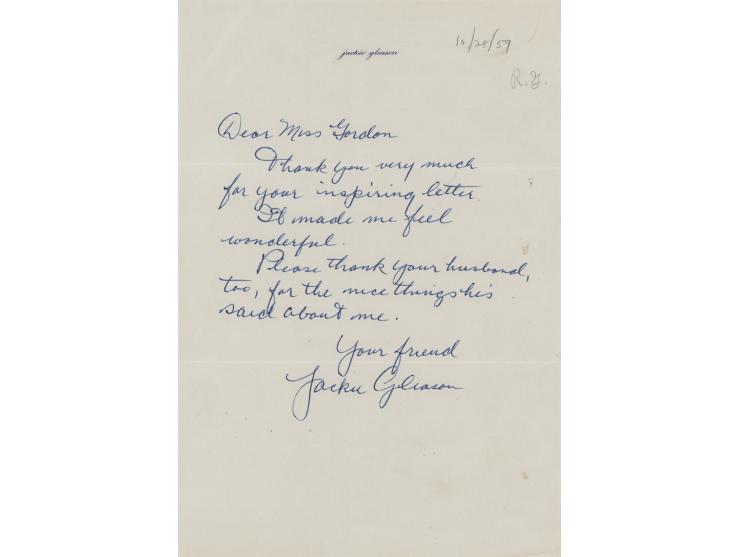 jackie gleason
10/28/59
R.G.
Dear Miss Gordon
Thank you very much
for your inspiring letter.
It made me feel
wonderful.
Please thank your husband,
too, for the nice things he's
said about me.
Your friend
Jackie Gleason